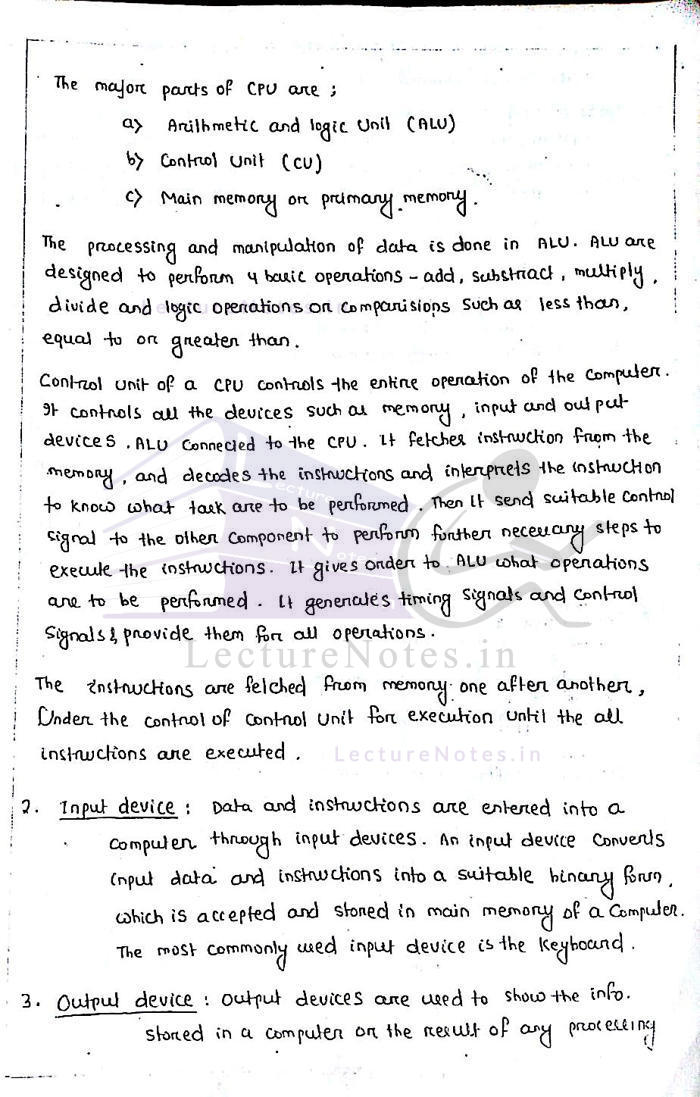 The major parts of CPU are ;
a> Arithmetic and logic Unit (ALU)
b> Control Unit (CU)
c> Main memory or primary memory.
The processing and manipulation of data is done in ALU. ALU are
designed to perform 4 basic operations - add, substract, multiply,
divide and logic operations or comparisions such as less than,
equal to or greater than.
Control unit of a CPU controls the entire operation of the computer.
It controls all the devices such as memory, input and output
devices, ALU connected to the CPU. It fetches instruction from the
memory, and decodes the instructions and interprets the instruction
to know what task are to be performed. Then it send suitable control
signal to the other component to perform further necessary steps to
execute the instructions. It gives order to ALU what operations
are to be performed. It generates timing signals and control
signals & provide them for all operations.
LectureNotes.in
The instructions are fetched from memory one after another,
Under the control of control unit for execution until the all
instructions are executed.
LectureNotes.in
2. Input device : Data and instructions are entered into a
computer through input devices. An input device converts
input data and instructions into a suitable binary form,
which is accepted and stored in main memory of a computer.
The most commonly used input device is the keyboard.
3. Output device : Output devices are used to show the info.
stored in a computer or the result of any processing